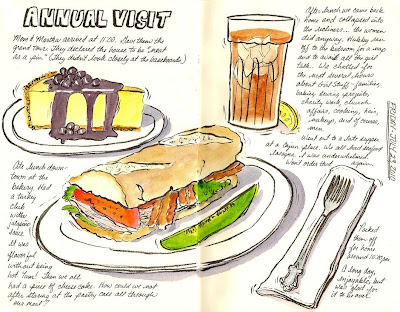 ANNUAL VISIT
Mom & Martha arrived at 11:00. Gave them the
grand tour. They declared the house to be "neat
as a pin." (They didn't look closely at the baseboards)
Ate lunch down-
town at the
bakery. Had a
turkey
club
with
jalapeño
sauce.
It was
flavorful
without being
hot. Yum! Then we all
had a piece of cheesecake. How could we not
after staring at the pastry case all through
our meal?
After lunch we came back
home and collapsed into
the recliners... the women
did anyway. Hubby ran
off to the bedroom for a nap
and to avoid all the girl
talk. We chatted for
the next several hours
about Girl Stuff - families,
baking, sewing projects,
charity work, church
affairs, cooking, hair,
makeup, and of course
men.
Went out to a late supper
at a Cajun place. We all had seafood
lasagna. It was underwhelming.
Won't order that again.
Packed
them off
for home
around 10:30pm
A long day,
enjoyable, but
was glad for
it to be over.